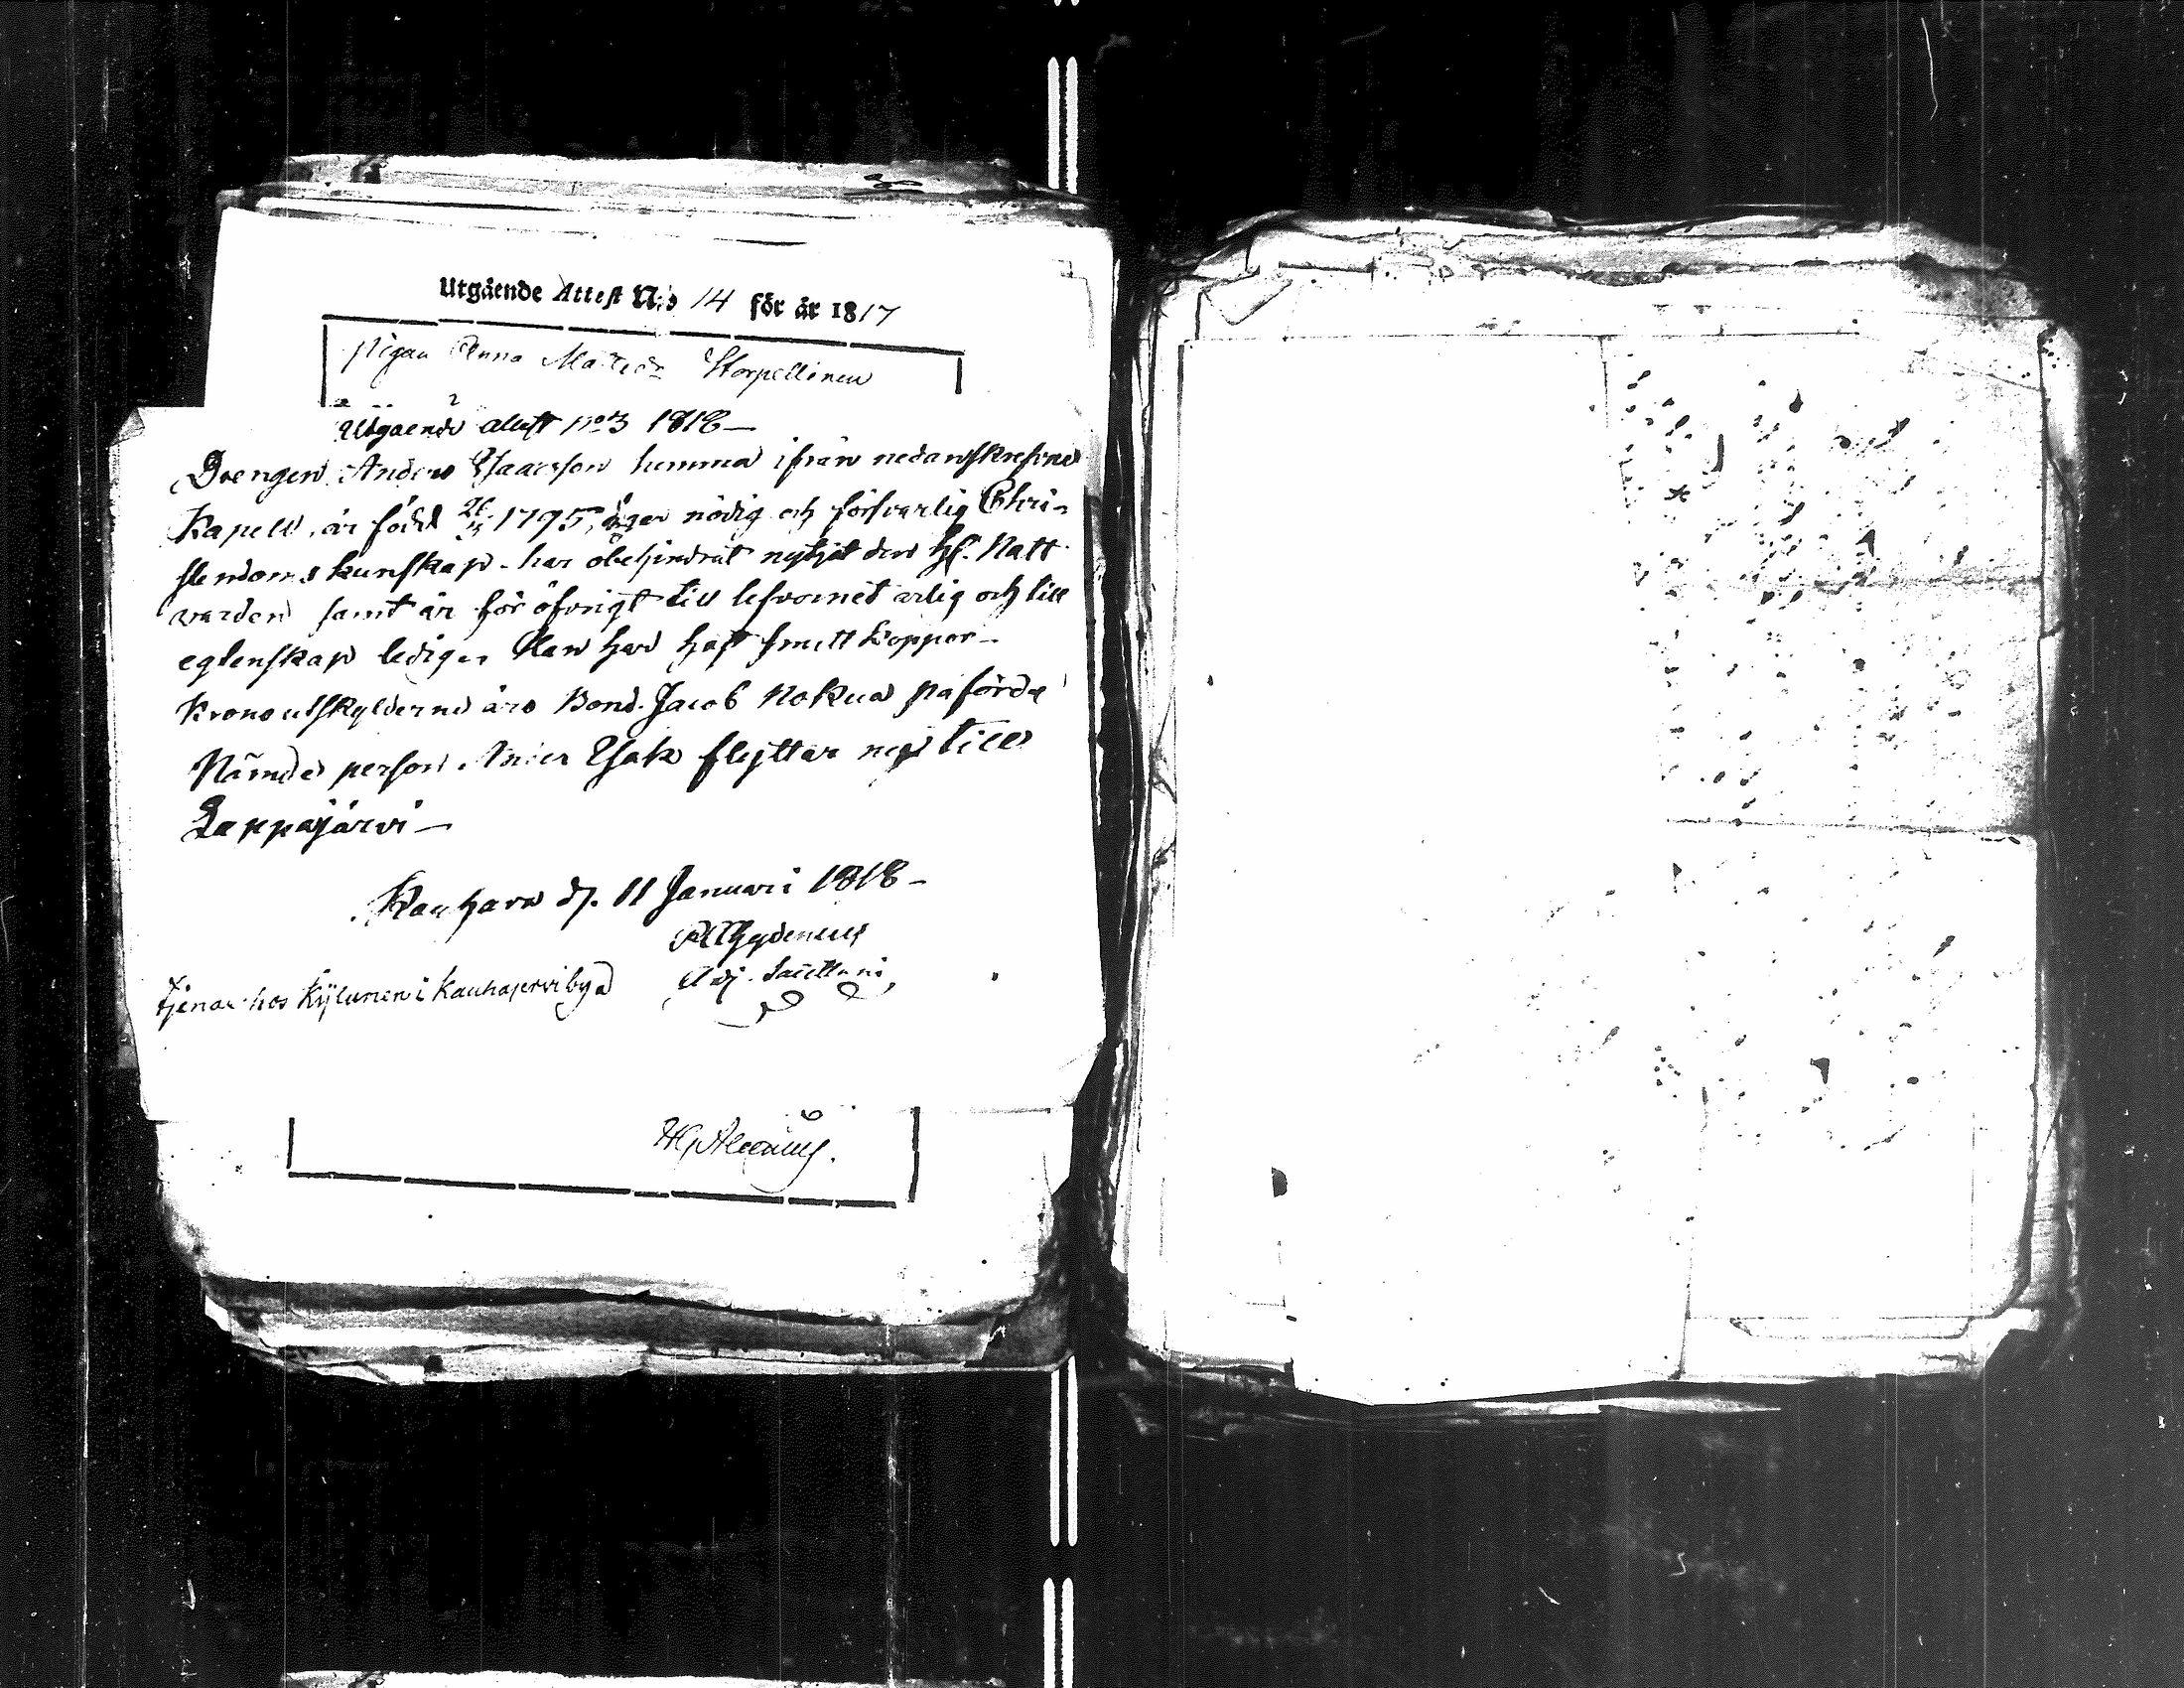 Utgående Attest N:o 14 för år 1817
pigan Anna Matsdr Storpellinen
Utgaende attest no 3 1818 —
Drengen Anders Isaacsson hemma ifrån nedanskrefne
Kapell, är född 26 1795, äger nödig och försvarlig Chri-
stendoms kunskap - har obehindrat nytjat den Hl. Natt
varden samt är för öfrigt till lefvernet ärlig och till
egtenskap ledig. Han har haft smitt koppor -
Kronoutskylderne äro Bond. Jacob Nokua påförde
Nämde person Ander Esak flyttar nu till
Lappajärvi —
Kauhava d. 11 Januari 1818 -
Chydenius
Adj. Sacellani
tjenar hos Kylänen i Kauhajervi by